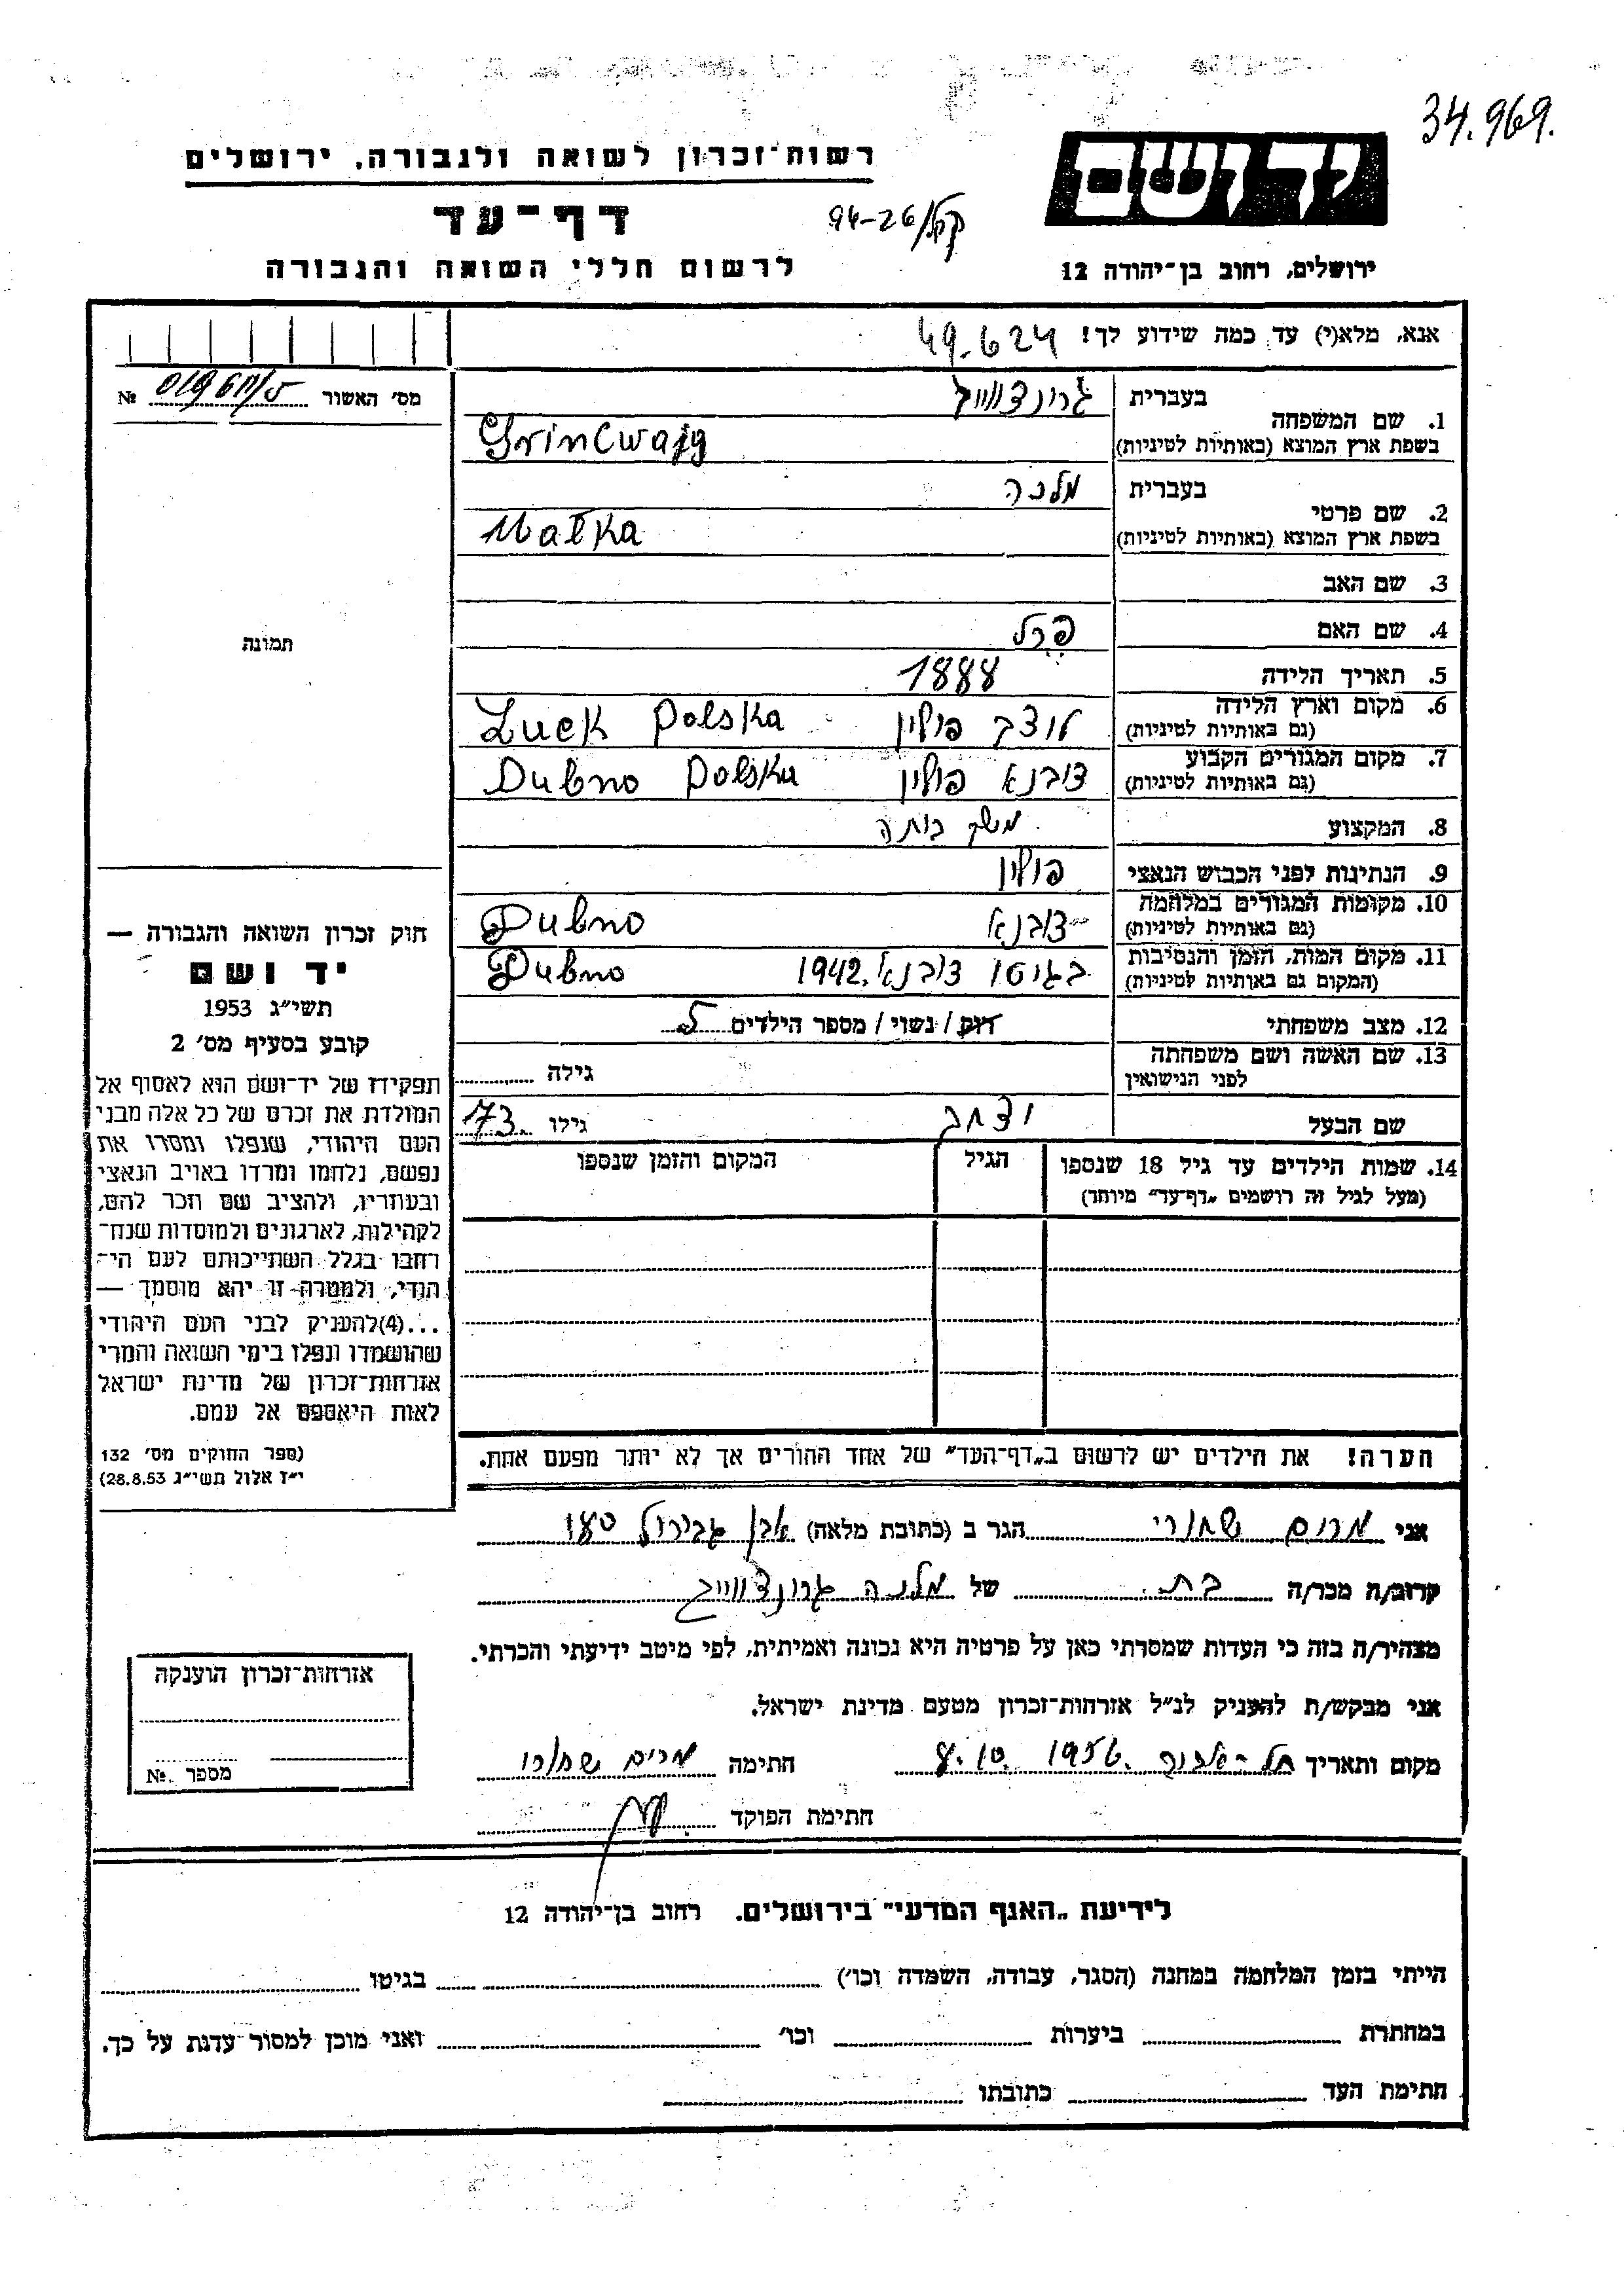 34.969.
יד ושם
רשות-זכרון לשואה ולגבורה, ירושלים
דף-עד
94-26/
לרשום חללי השואה והגבורה
ירושלים, רחוב בן-יהודה 12
אנא, מלא(י) עד כמה שידוע לך! 49.624
מס' האשור №
1. שם המשפחה
בעברית גרונצווייג
בשפת ארץ המוצא (באותיות לטיניות) Grincwajg
2. שם פרטי
בעברית מלכה
בשפת ארץ המוצא (באותיות לטיניות) Malka
3. שם האב
4. שם האם פרל
5. תאריך הלידה 1888
6. מקום וארץ הלידה
(גם באותיות לטיניות) לוצק פולין Łuck Polska
7. מקום המגורים הקבוע
(גם באותיות לטיניות) דובנא פולין Dubno Polska
8. המקצוע משק ביתה
9. הנתינות לפני הכבוש הנאצי פולין
10. מקומות המגורים במלחמה
(גם באותיות לטיניות) דובנא Dubno
11. מקום המות, הזמן והנסיבות
(המקום גם באותיות לטיניות) בגיטו דובנא 1942. Dubno
12. מצב משפחתי רווק / נשוי / מספר הילדים
13. שם האשה ושם משפחתה
לפני הנישואין גילה
שם הבעל יצחק גילו 73.
14. שמות הילדים עד גיל 18 שנספו
(מעל לגיל זה רושמים „דף-עד" מיוחד)
הגיל
המקום והזמן שנספו
הערה! את הילדים יש לרשום ב„דף-העד" של אחד ההורים אך לא יותר מפעם אחת.
תמונה
חוק זכרון השואה והגבורה —
יד ושם
תשי"ג 1953
קובע בסעיף מס' 2
תפקידו של יד-ושם הוא לאסוף אל
המולדת את זכרם של כל אלה מבני
העם היהודי, שנפלו ומסרו את
נפשם, נלחמו ומרדו באויב הנאצי
ובעוזריו, ולהציב שם וזכר להם,
לקהילות, לארגונים ולמוסדות שנח-
רחבו בגלל השתייכותם לעם הי-
הודי, ולמטרה זו יהא מוסמך —
...(4)להעניק לבני העם היהודי
שהושמדו ונפלו בימי השואה והמרי
אזרחות-זכרון של מדינת ישראל
לאות היאספם אל עמם.
(ספר החוקים מס' 132
י"ז אלול תשי"ג 28.8.53)
אני מרים שחורי הגר ב (כתובת מלאה) אבן גבירול 180
קרוב/ה מכר/ה בת של מלכה גרונצווייג
מצהיר/ה בזה כי העדות שמסרתי כאן על פרטיה היא נכונה ואמיתית, לפי מיטב ידיעתי והכרתי.
אני מבקש/ת להעניק לנ"ל אזרחות-זכרון מטעם מדינת ישראל.
מקום ותאריך תל-אביב 8.10.1956. חתימה מרים שחורי
חתימת הפוקד
אזרחות-זכרון הוענקה
מספר №
לידיעת „האגף המדעי" בירושלים. רחוב בן-יהודה 12
הייתי בזמן המלחמה במחנה (הסגר, עבודה, השמדה וכו') בגיטו
במחתרת ביערות וכו' ואני מוכן למסור עדות על כך.
חתימת העד כתובתו